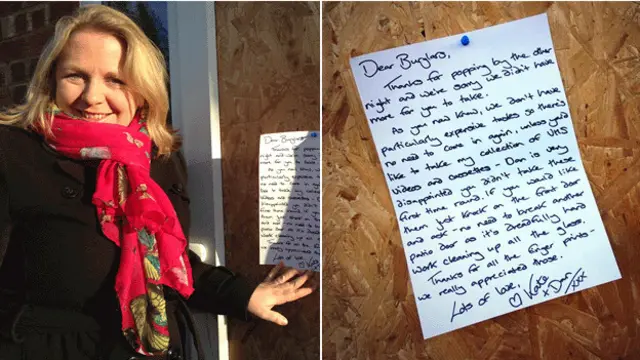 Dear Burglars,
Thanks for popping by the other
night and we're sorry we didn't have
more for you to take.
As you now know, we don't have
particularly expensive tastes so there's
no need to come in again, unless you'd
like to take my collection of VHS
videos and cassettes - Dan is very
disappointed you didn't take these
first time round. If you would like
them just knock on the front door
and ask - no need to break another
patio door as it's dreadfully hard
work cleaning up all the glass.
Thanks for all the finger prints -
we really appreciated those.
Lots of love,
Kate
x Dan xxx